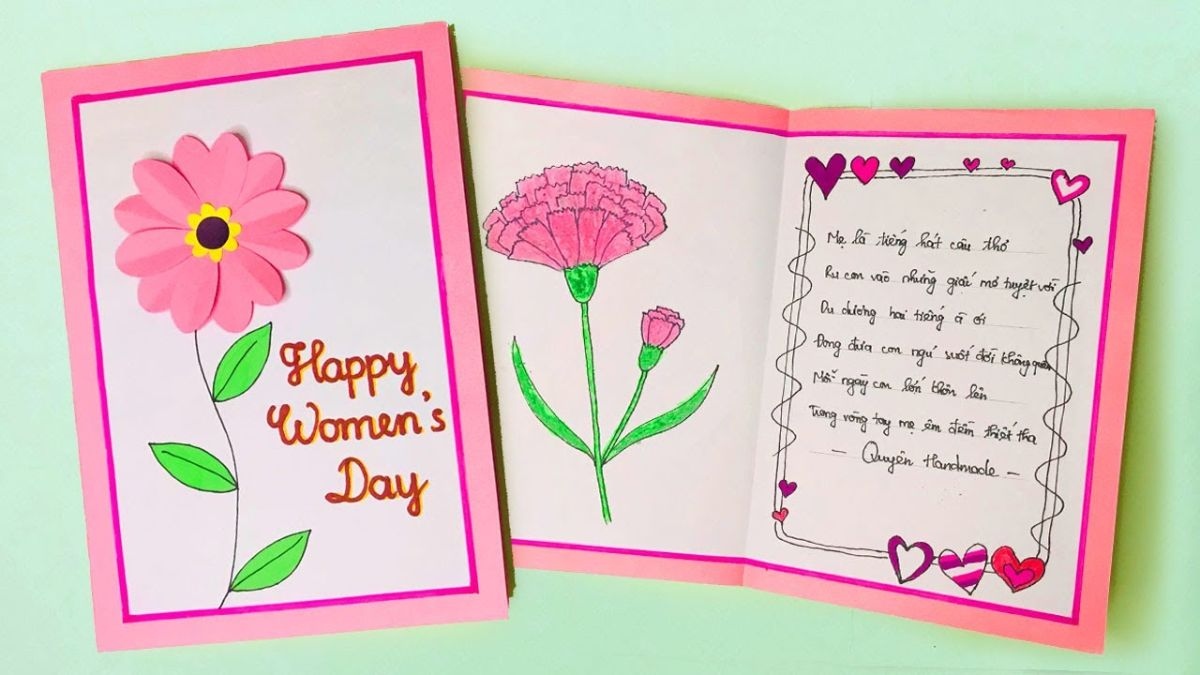 Happy
Women's
Day
Mẹ là tiếng hát câu thơ
Ru con vào những giấc mơ tuyệt vời
Du dương hai tiếng à ơi
Đong đưa con ngủ suốt đời không quên
Mỗi ngày con lớn thôn lên
Trong vòng tay mẹ êm đềm thiết tha
- Quyên Handmade -